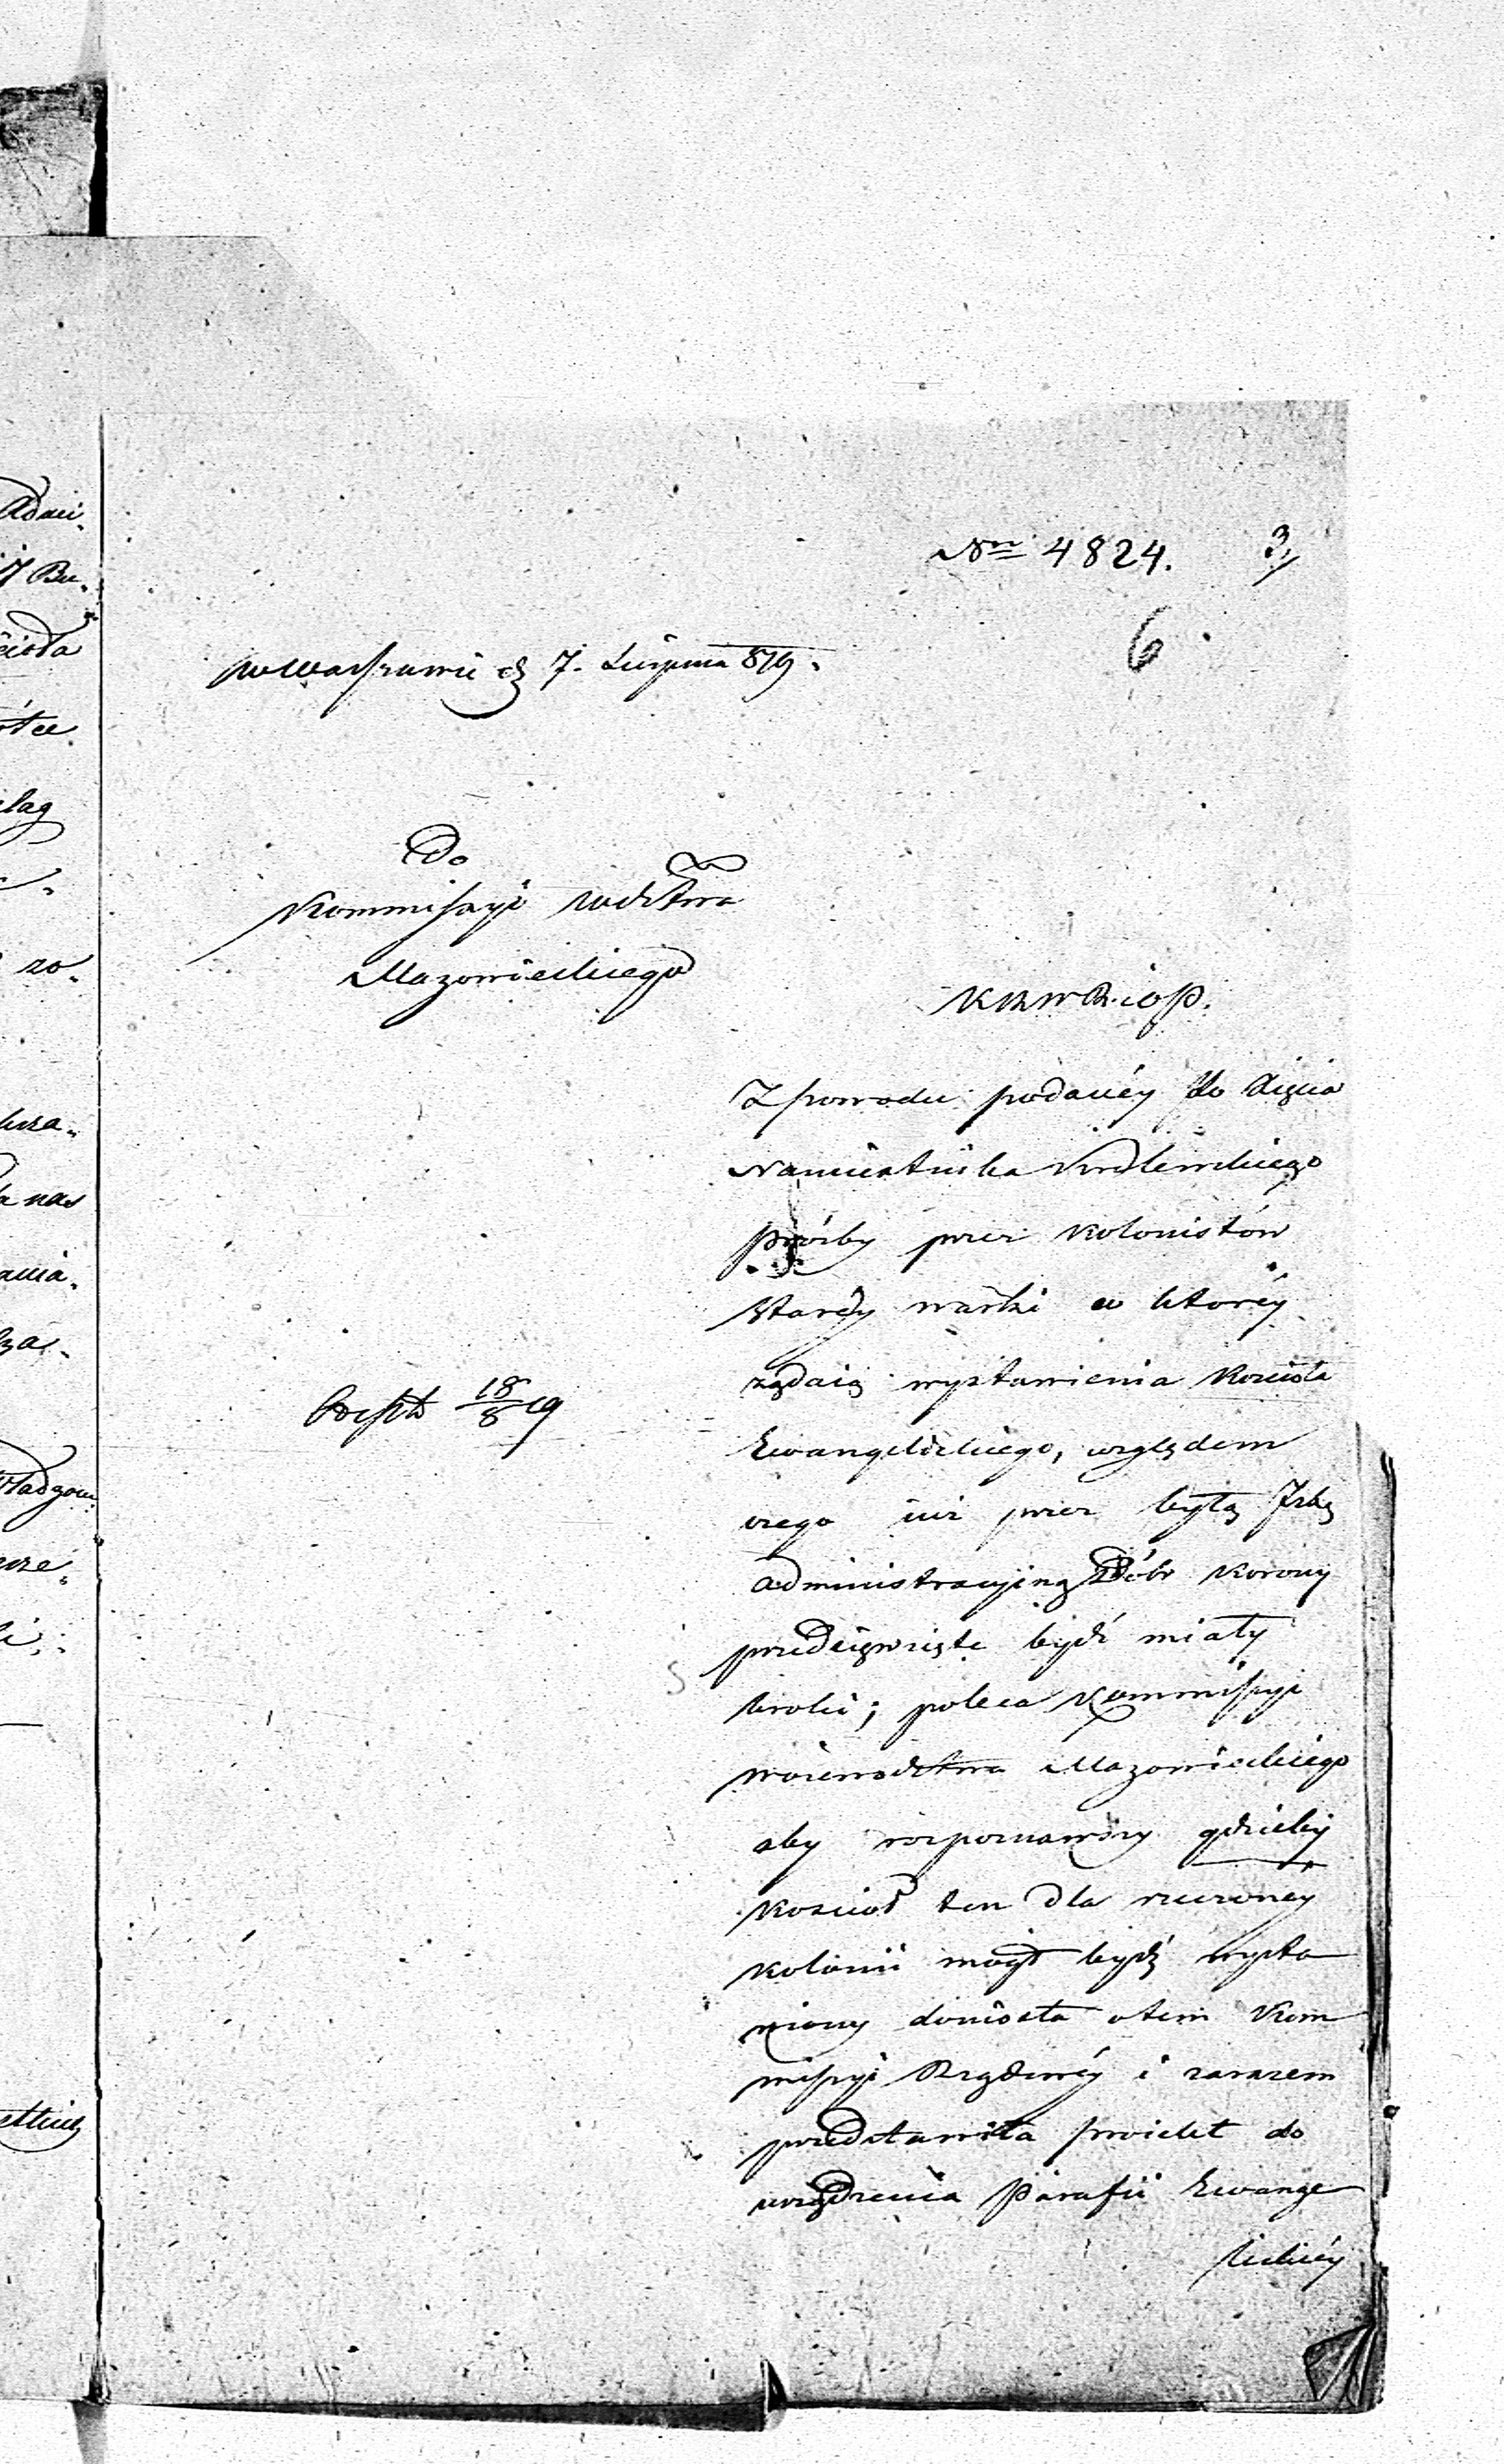 Nro 4824. 3/
6
w Warszawie d 7. Sierpnia 819.
Do
Kommissyi Wdztwa
Mazowieckiego
K R W R. i O P.
Z powodu podanéy do Xięcia
Namiestnika Królewskiego
proźby przez Kolonistów
Staréy warki w którey
żądaią wystawienia Kościoła
Ewangelickiego, względem
czego iuż przez byłą Izbę
administracyiną Dóbr Korony
przedsięwzięte bydź miały
kroki; poleca Kommissyi
Woiewodztwa Mazowieckiego
aby rozpoznawszy gdzieby
Kosciół ten dla rzeczoney
Kolonii mógł bydź wysta
wiony doniosła o tem Kom
missyi Rządowéy i zarazem
przedstawiła proiekt do
urządzenia Parafii Ewange
lickiéy
18/8 19
Admi-
7 Bu-
ścioła
ótce
zo-
a nas
ania-
za-